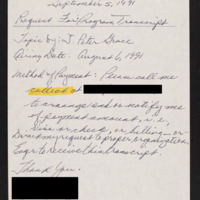 September 5, 1991
Request For Program Transcript
Topic by: J. Peter Grace
Airing Date: August 6, 1991
Method of Payment: Please call me
collect at
to arrange and or notify me
of payment amount, i.e.,
Visa or check, or billing - or
Direct my request to proper organization.
Eager to receive this transcript.
Thank You.